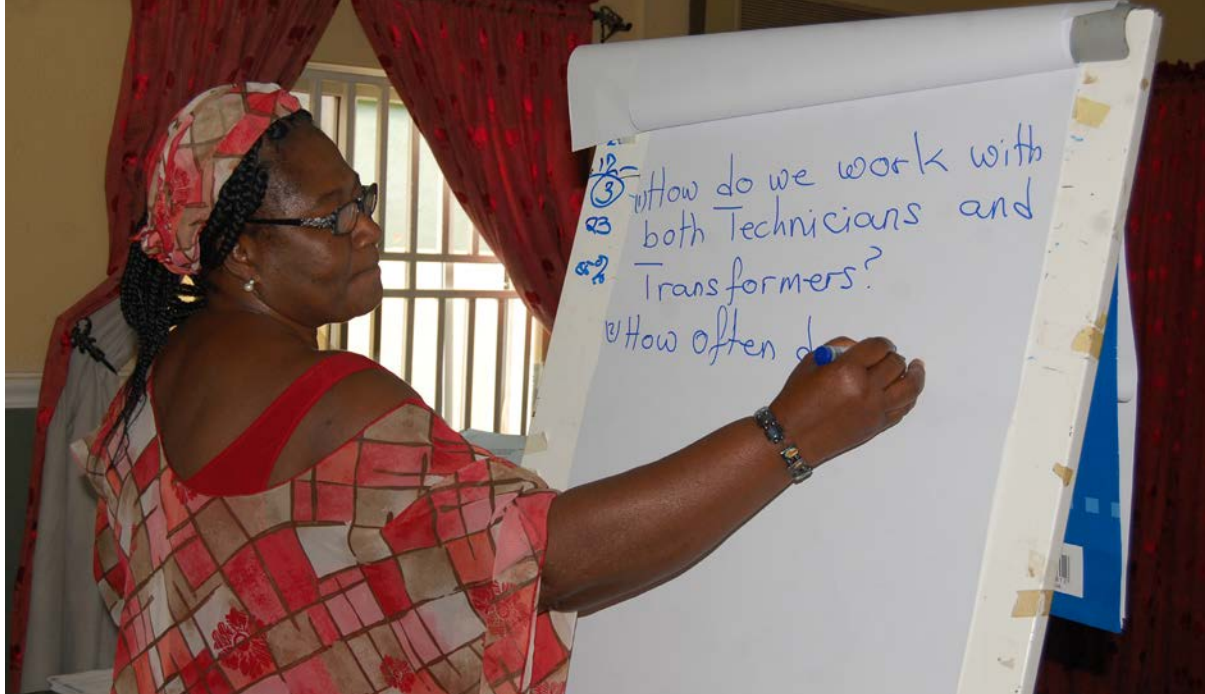 12-
3
(1) How do we work with
23
both Technicians and
Transformers?
(2) How often d